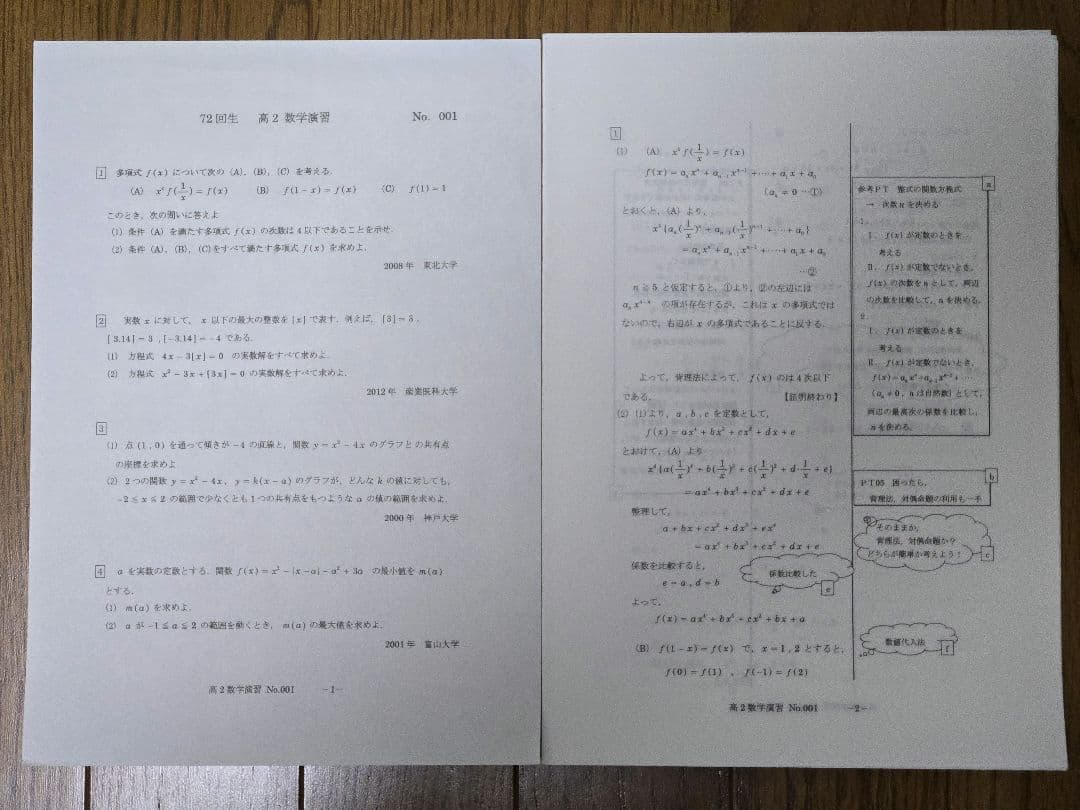 72回生 高2 数学演習 No. 001
1 多項式 f(x) について次の (A), (B), (C) を考える.
(A) x⁴f(1/x) = f(x) (B) f(1-x) = f(x) (C) f(1) = 1
このとき, 次の問いに答えよ
(1) 条件 (A) を満たす多項式 f(x) の次数は4以下であることを示せ.
(2) 条件 (A), (B), (C)をすべて満たす多項式 f(x) を求めよ.
2008年 東北大学
2 実数 x に対して, x 以下の最大の整数を [x] で表す. 例えば, [3] = 3,
[3.14] = 3, [-3.14] = -4 である.
(1) 方程式 4x-3[x] = 0 の実数解をすべて求めよ.
(2) 方程式 x²-3x+[3x] = 0 の実数解をすべて求めよ.
2012年 産業医科大学
3
(1) 点 (1, 0) を通って傾きが -4 の直線と, 関数 y = x²-4x のグラフとの共有点
の座標を求めよ
(2) 2つの関数 y = x²-4x, y = k(x-a) のグラフが, どんな k の値に対しても,
-2≦x≦2 の範囲で少なくとも1つの共有点をもつような a の値の範囲を求めよ.
2000年 神戸大学
4 a を実数の定数とする. 関数 f(x) = x²-|x-a|-a²+3a の最小値を m(a)
とする.
(1) m(a) を求めよ.
(2) a が -1≦a≦2 の範囲を動くとき, m(a) の最大値を求めよ.
2001年 富山大学
高2数学演習 No.001 -1-
1
(1) (A) x⁴f(1/x) = f(x)
f(x) = aₙxⁿ + aₙ₋₁xⁿ⁻¹ + … + a₁x + a₀
(aₙ ≠ 0 …①)
とおくと, (A) より,
x⁴{aₙ(1/x)ⁿ + aₙ₋₁(1/x)ⁿ⁻¹ + … + a₀}
= aₙxⁿ + aₙ₋₁xⁿ⁻¹ + … + a₁x + a₀
…②
n≧5 と仮定すると, ①より, ②の左辺には
aₙx⁴⁻ⁿ の項が存在するが, これは x の多項式では
ないので, 右辺が x の多項式であることに反する.
よって, 背理法によって, f(x) のは4次以下
である. 【証明終わり】
(2) (1)より, a, b, c を定数として,
f(x) = ax⁴ + bx³ + cx² + dx + e
とおけて, (A) より
x⁴{a(1/x)⁴ + b(1/x)³ + c(1/x)² + d·1/x + e}
= ax⁴ + bx³ + cx² + dx + e
整理して,
a + bx + cx² + dx³ + ex⁴
= ax⁴ + bx³ + cx² + dx + e
係数を比較すると,
e = a, d = b
よって,
f(x) = ax⁴ + bx³ + cx² + bx + a
(B) f(1-x) = f(x) で, x = 1, 2 とすると,
f(0) = f(1), f(-1) = f(2)
高2数学演習 No.001 -2-
a
参考PT 整式の関数方程式
→ 次数 n を決める
1.
Ⅰ. f(x) が定数のときを
考える
Ⅱ. f(x) が定数でないとき,
f(x) の次数を n として, 両辺
の次数を比較して, n を決める.
2.
Ⅰ. f(x) が定数のときを
考える
Ⅱ. f(x) が定数でないとき,
f(x) = aₙxⁿ + aₙ₋₁xⁿ⁻¹ + …
(aₙ ≠ 0, n は自然数) として,
両辺の最高次の係数を比較し,
n を決める.
b
PT05 困ったら,
背理法, 対偶命題の利用も一手
そのままか,
背理法, 対偶命題か?
どちらが簡単か考えよう!
c
係数比較した
e
数値代入法
f